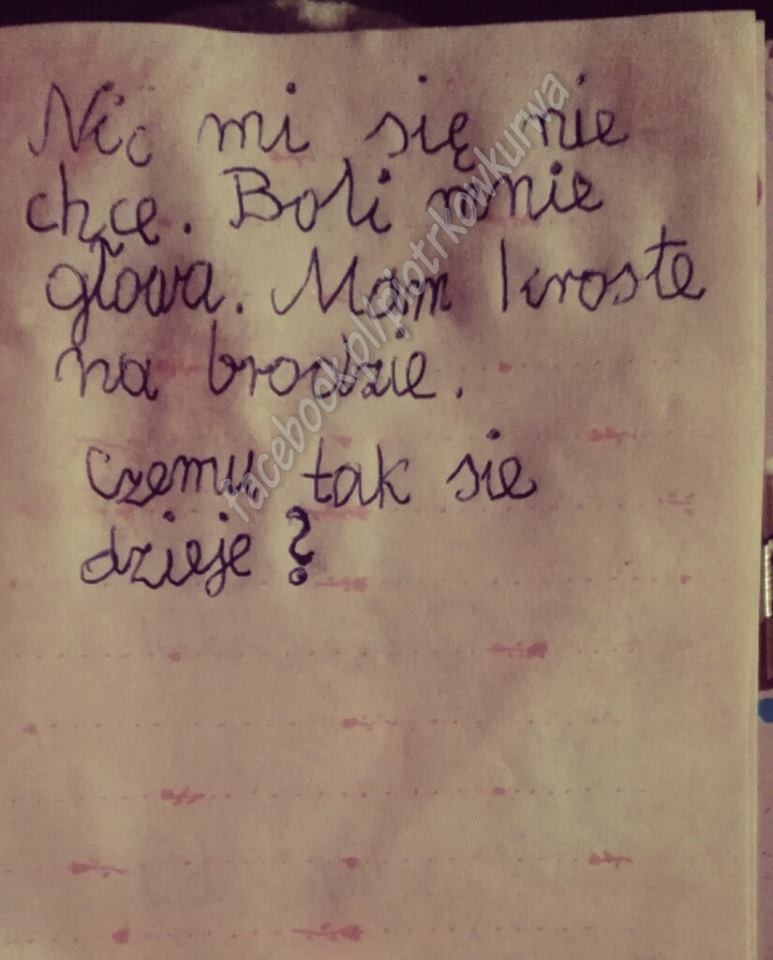 Nic mi się nie
chcę. Boli mnie
głowa. Mam kroste
na brodzie.
Czemu tak się
dzieje?
facebook.pl/piotrkowkurwa